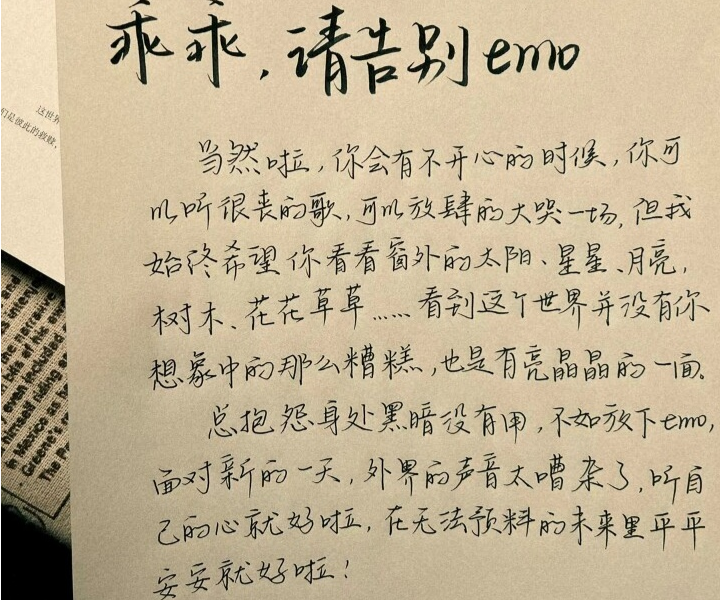 乖乖，请告别emo
当然啦，你会有不开心的时候，你可
以听很丧的歌，可以放肆的大哭一场，但我
始终希望你看看窗外的太阳、星星、月亮，
树木、花花草草……看到这个世界并没有你
想象中的那么糟糕，也是有亮晶晶的一面。
总抱怨身处黑暗没有用，不如放下emo，
面对新的一天，外界的声音太嘈杂了，听自
己的心就好啦，在无法预料的未来里平平
安安就好啦！
这世界
们是彼此的救赎，